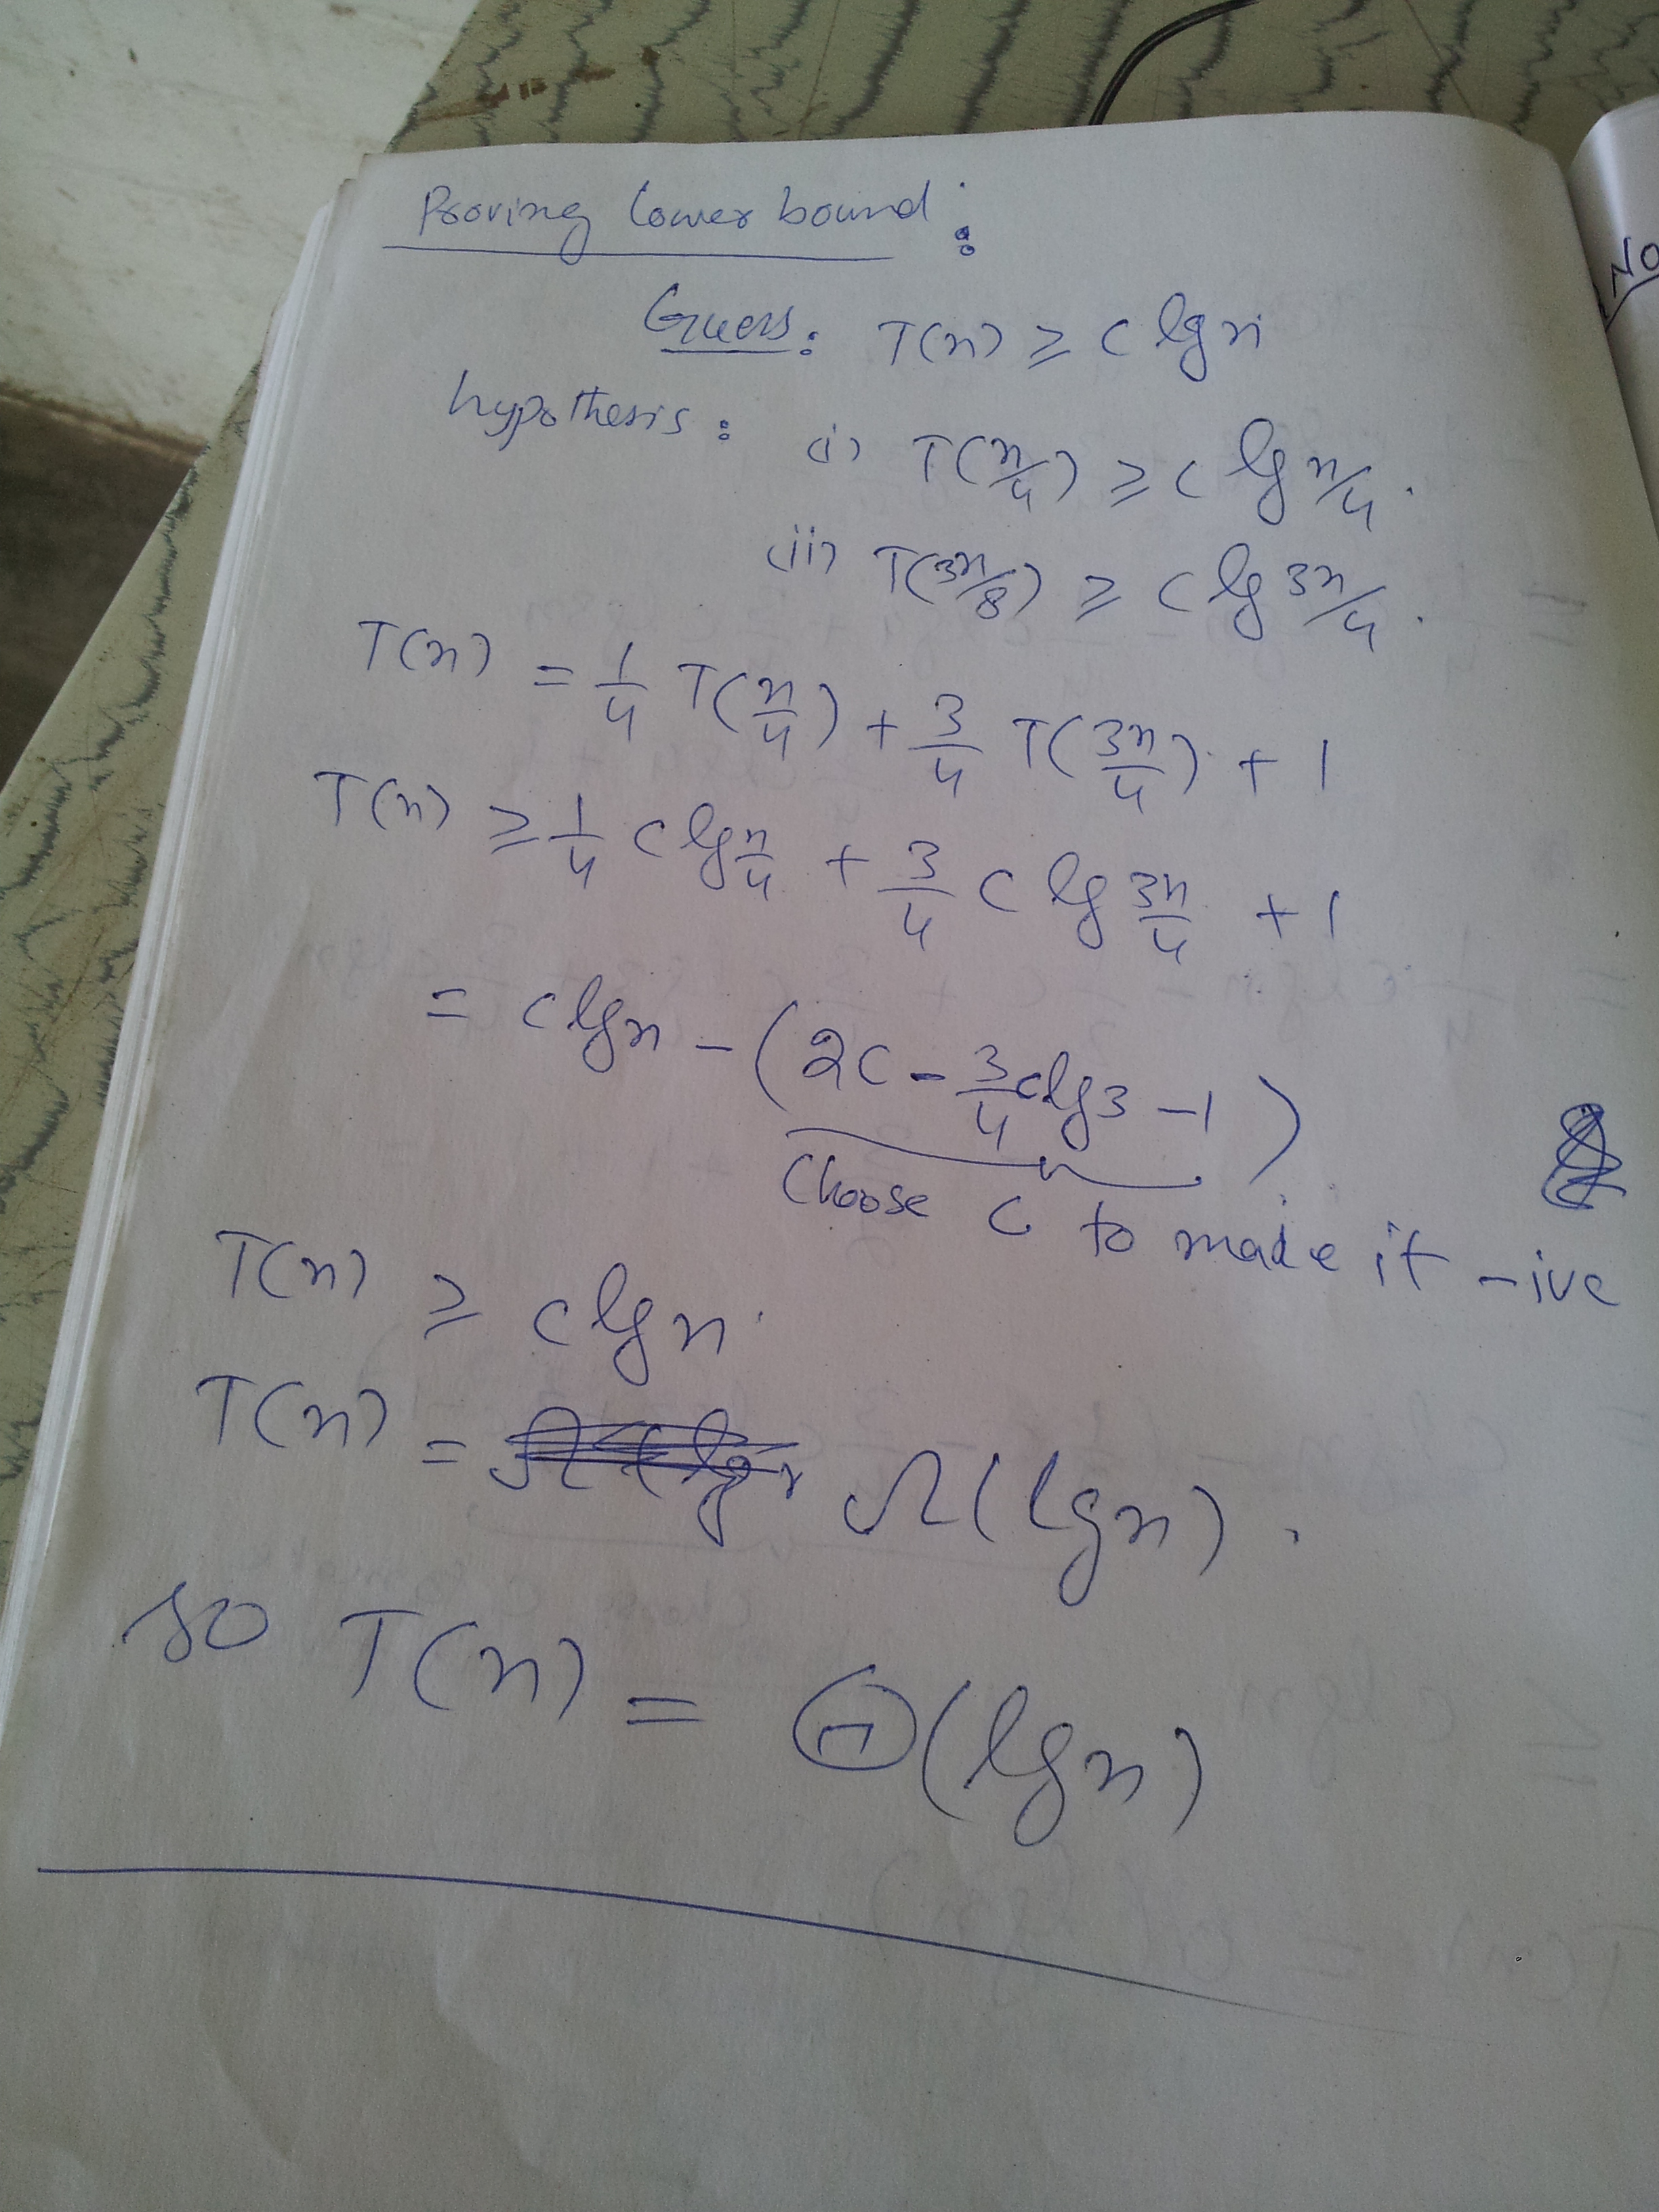 Proving lower bound:
Guess: T(n) ≥ c lg n
hypothesis: i) T(n/4) ≥ c lg n/4.
ii) T(3n/8) ≥ c lg 3n/4.
T(n) = 1/4 T(n/4) + 3/4 T(3n/4) + 1
T(n) ≥ 1/4 c lg n/4 + 3/4 c lg 3n/4 + 1
= c lg n - (2c - 3/4 c lg 3 - 1)
choose c to make it -ive
T(n) ≥ c lg n.
T(n) = Ω(lg n).
so T(n) = Θ(lg n)
NO